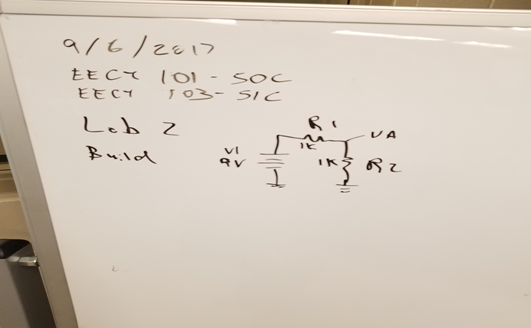 9/6/2017
EECT 101-SOC
EECT 103-SIC
Lab 2
Build
R1
1K
VA
V1
9V
1K
R2